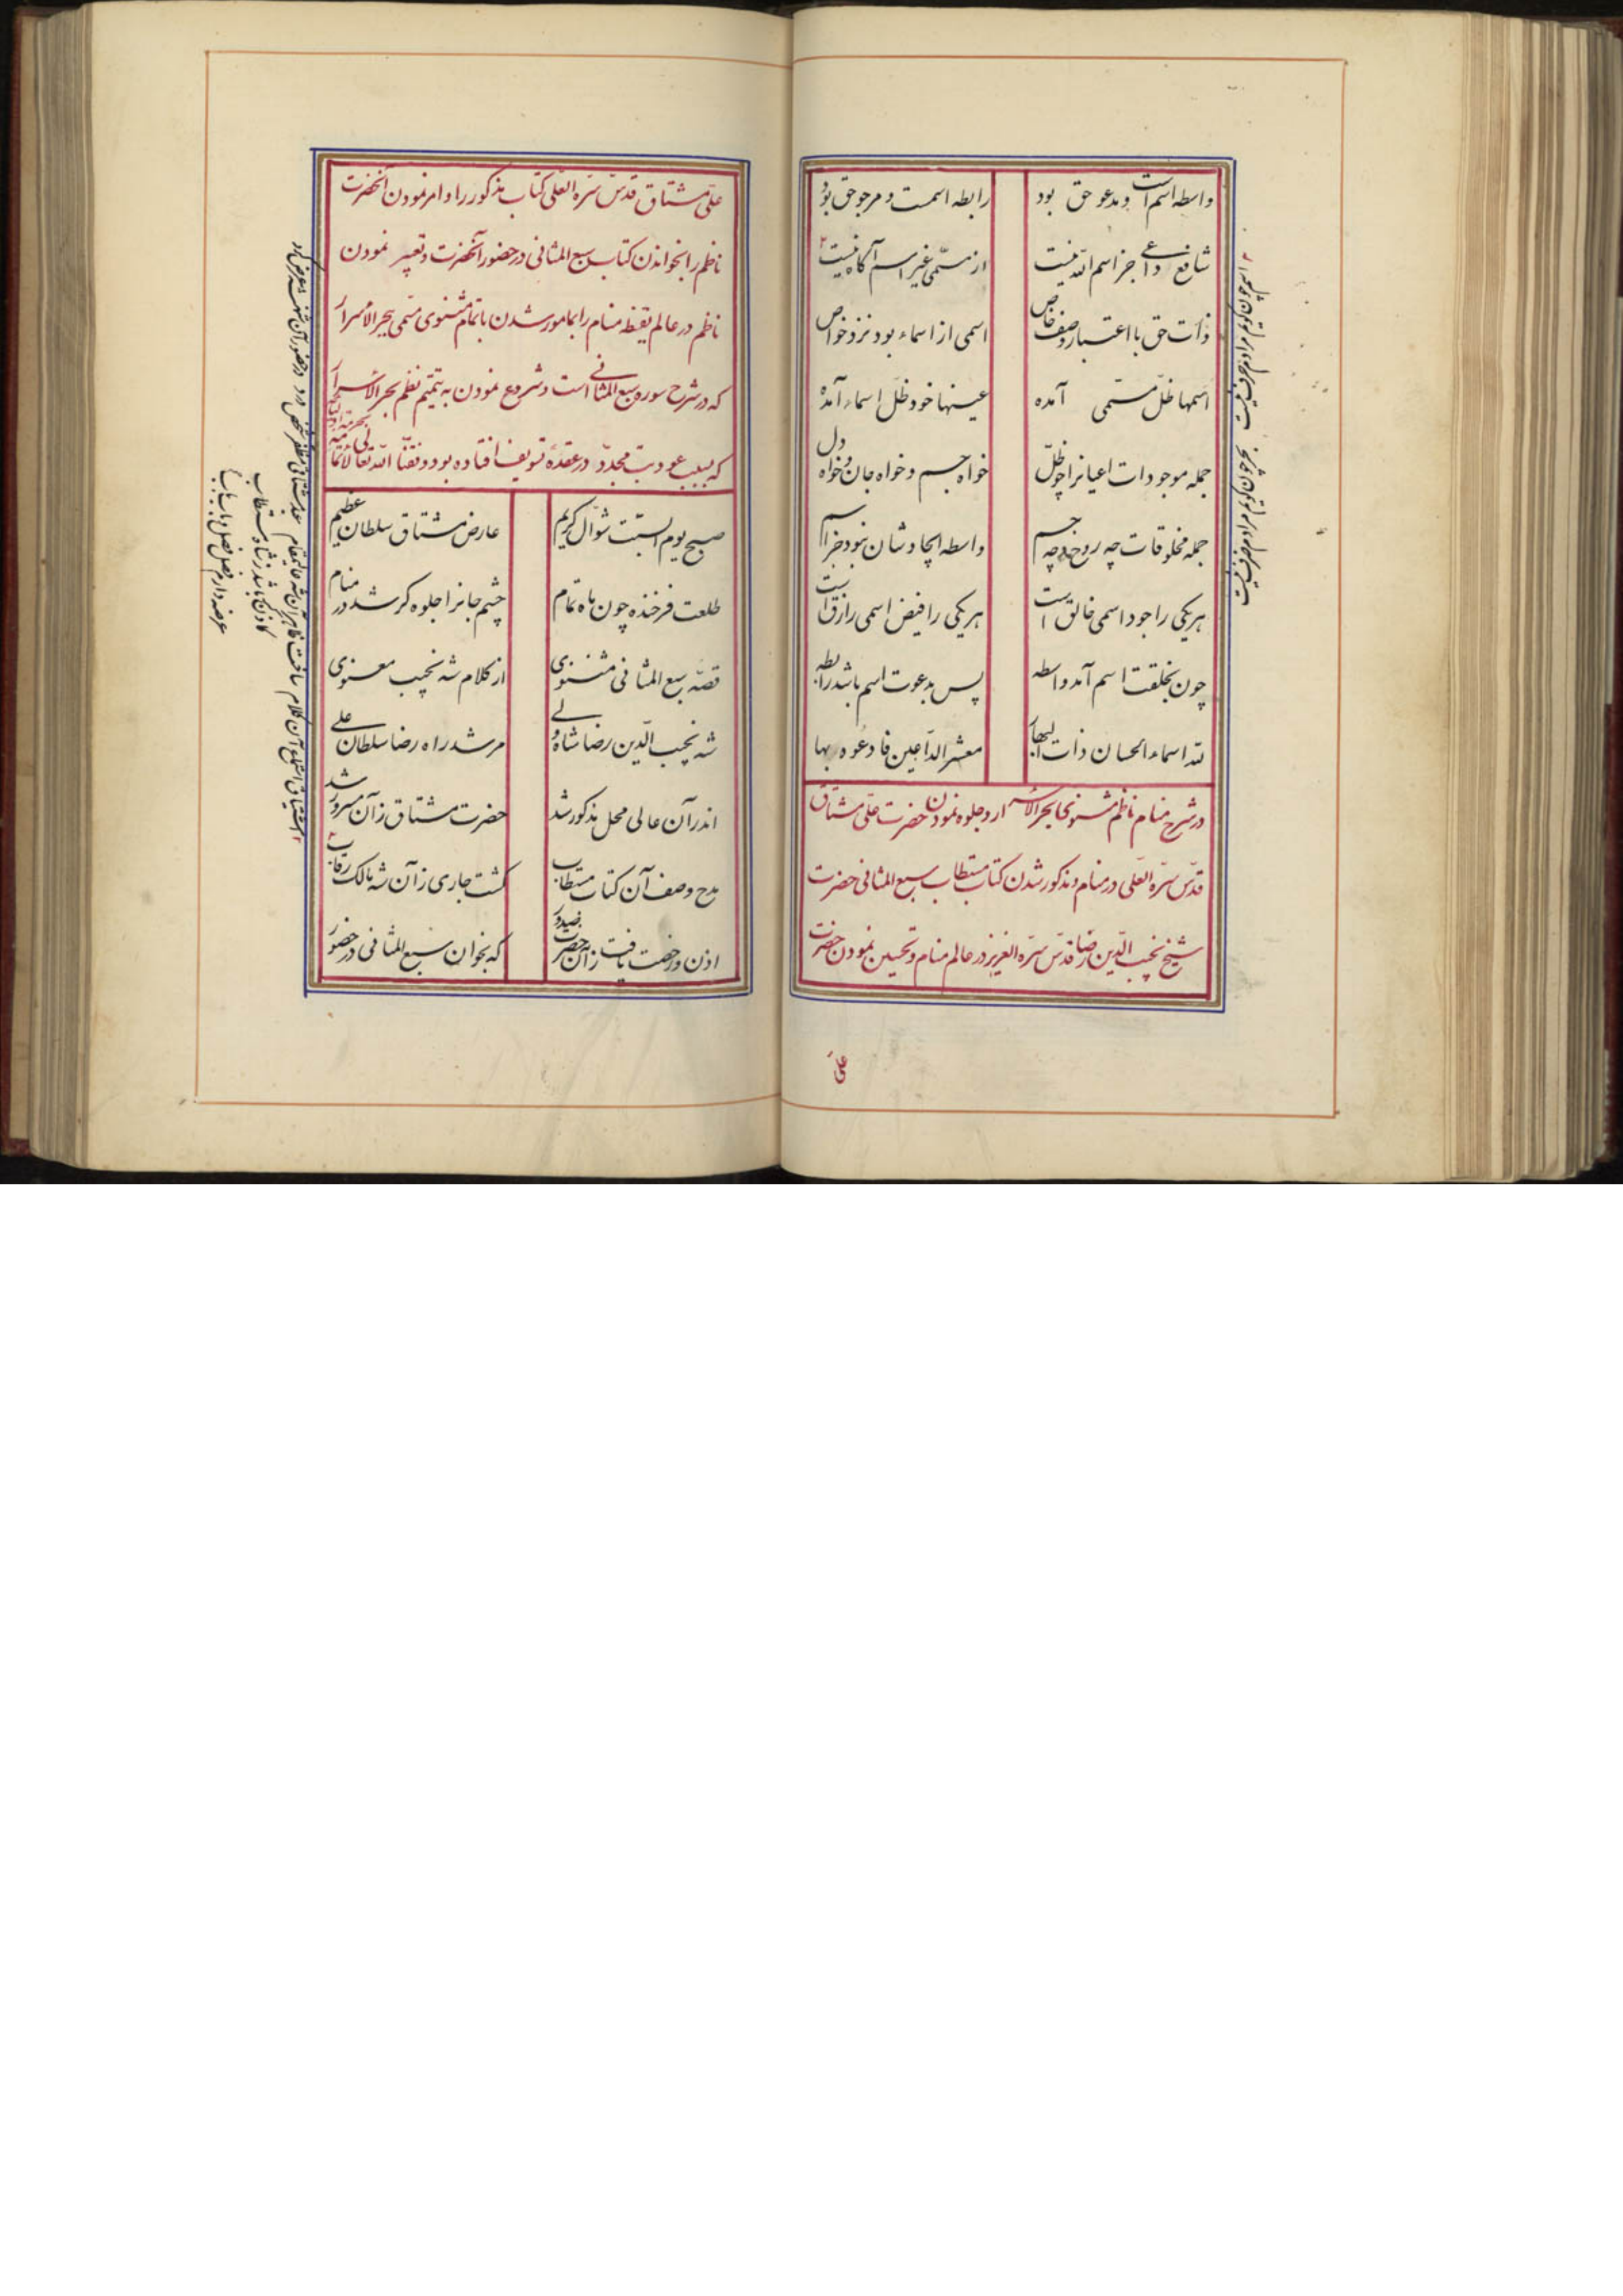 واسطه اسم است ومدعو حق بود
رابطه اسمست و مرجو حق بود
شافع داعی جز اسم الله نیست
از مسمّی غیر اسم آگاه نیست
ذات حق با اعتبار وصف خاص
اسمی از اسماء بود نزد خواص
اسمها ظلّ مسمّی آمده
عینها خود ظلّ اسماء آمده
جمله موجودات اعیانرا چو ظلّ
خواه جسم و خواه جان و خواه دل
جمله مخلوقات چه روح و چه جسم
واسطه ایجادشان نبود جز اسم
هریکی را جود اسمی خالق است
هریکی را فیض اسمی رازق است
چون بخلقت اسم آمد واسطه
پس بدعوت اسم باشد رابطه
لله اسماء الحسان ذات البها
معشر الدّاعین فادعوه بها
در شرح منام ناظم مثنوی بحر الاسرار و جلوه نمودن حضرت علی مشتاق
قدّس سرّه العلی در منام و مذکور شدن کتاب مستطاب سبع المثانی حضرت
شیخ نجیب الدّین رضا قدّس سرّه العزیز در عالم منام و تحسین نمودن حضرت
علی
علی مشتاق قدّس سرّه العلی کتاب مذکور را و امر نمودن آنحضرت
ناظم را بخواندن کتاب سبع المثانی در حضور آنحضرت و تعبیر نمودن
ناظم در عالم یقظه منام را بمامور شدن باتمام مثنوی مسمّی ببحر الاسرار
که در شرح سوره سبع المثانی است و شروع نمودن به تتمیم نظم بحر الاسرار
که بسبب عود تب مجدّد در عقده تسویف افتاده بود وفقنا الله تعالی لاتمامه
صبح یوم السّبت شوّال کریم
عارض مشتاق سلطان عظیم
طلعت فرخنده چون ماه تمام
چشم جانرا جلوه گر شد در منام
قصّه سبع المثانی مثنوی
از کلام شه نجیب معنوی
شه نجیب الدّین رضا شاه ولی
مرشد راه رضا سلطان علی
اندر آن عالی محل مذکور شد
حضرت مشتاق زان مسرور شد
مدح وصف آن کتاب مستطاب
گشت جاری زان شه مالک رقاب
اذن و رخصت یافت زان حضرت صدور
که بخوان سبع المثانی در حضور